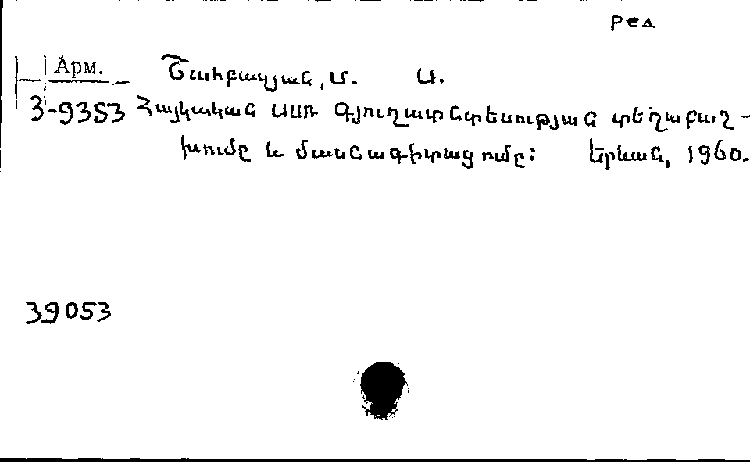 Ред
Арм. Նալբանդյան, Մ. Ա.
3-9353 Հայկական ՍՍՌ Գյուղատնտեսության տեղաբաշ-
խումը և մասնագիտացումը: Երևան, 1960.
39053